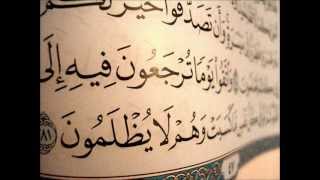 وَأَن تَصَدَّقُوا۟ خَيْرٌ لَّكُمْ
وَٱتَّقُوا۟ يَوْمًا تُرْجَعُونَ فِيهِ إِلَى
كَسَبَتْ وَهُمْ لَا يُظْلَمُونَ ٢٨١